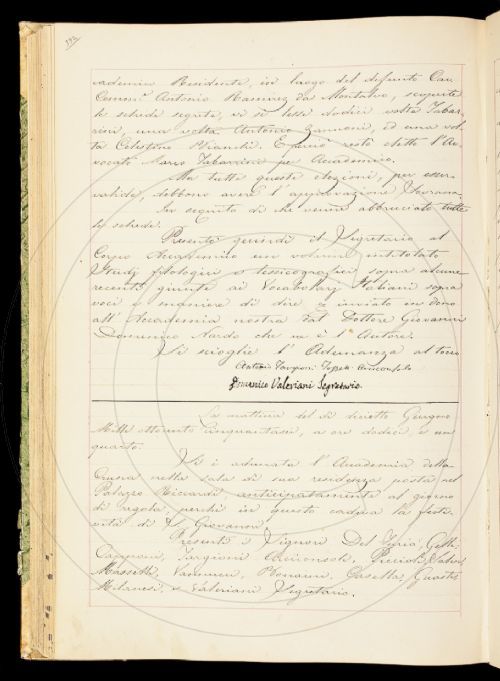 192
ademico Residente, in luogo del defunto Cav.
Comm.e Antonio Ramirez da Montalvo, scoperte
le schede segrete, vi si lesse dodici volte Tabar-
rini, una volta Antonio Zannoni, ed una vol-
ta Celestino Bianchi. E però restò eletto l'Av-
vocato Marco Tabarrini per Accademico.
Ma tutte queste elezioni, per esser
valide, debbono avere l'approvazione Sovrana.
In seguito di che venne abbruciato tutte
le schede.
Presentò quindi il Segretario al
Corpo Accademico un volume intitolato
Studj filologici e lessicografici sopra alcune
recenti giunte ai Vocabolarj Italiani sopra
voci e maniere di dire e inviato in dono
all'Accademia nostra dal Dottore Giovanni
Domenico Nardo che ne è l'Autore.
Si scioglie l'Adunanza al tocco
Antonio Targioni Tozzetti Arciconsolo
Domenico Valeriani Segretario.
La mattina del dì diciotto Giugno
Mille ottocento cinquantasei, a ore dodici e un
quarto.
Si è adunata l'Accademia della
Crusca nella sala di sua residenza posta nel
Palazzo Riccardi, anticipatamente al giorno
di regola, perchè in questo cadeva la festi-
vità di S. Giovanni.
Presenti i Signori Del Furia, Gelli,
Capponi, Targioni Arciconsolo, Piccioli, Salvi,
Masselli, Vannucci, Bonaini, Casella, Guasti,
Milanesi, e Valeriani Segretario.